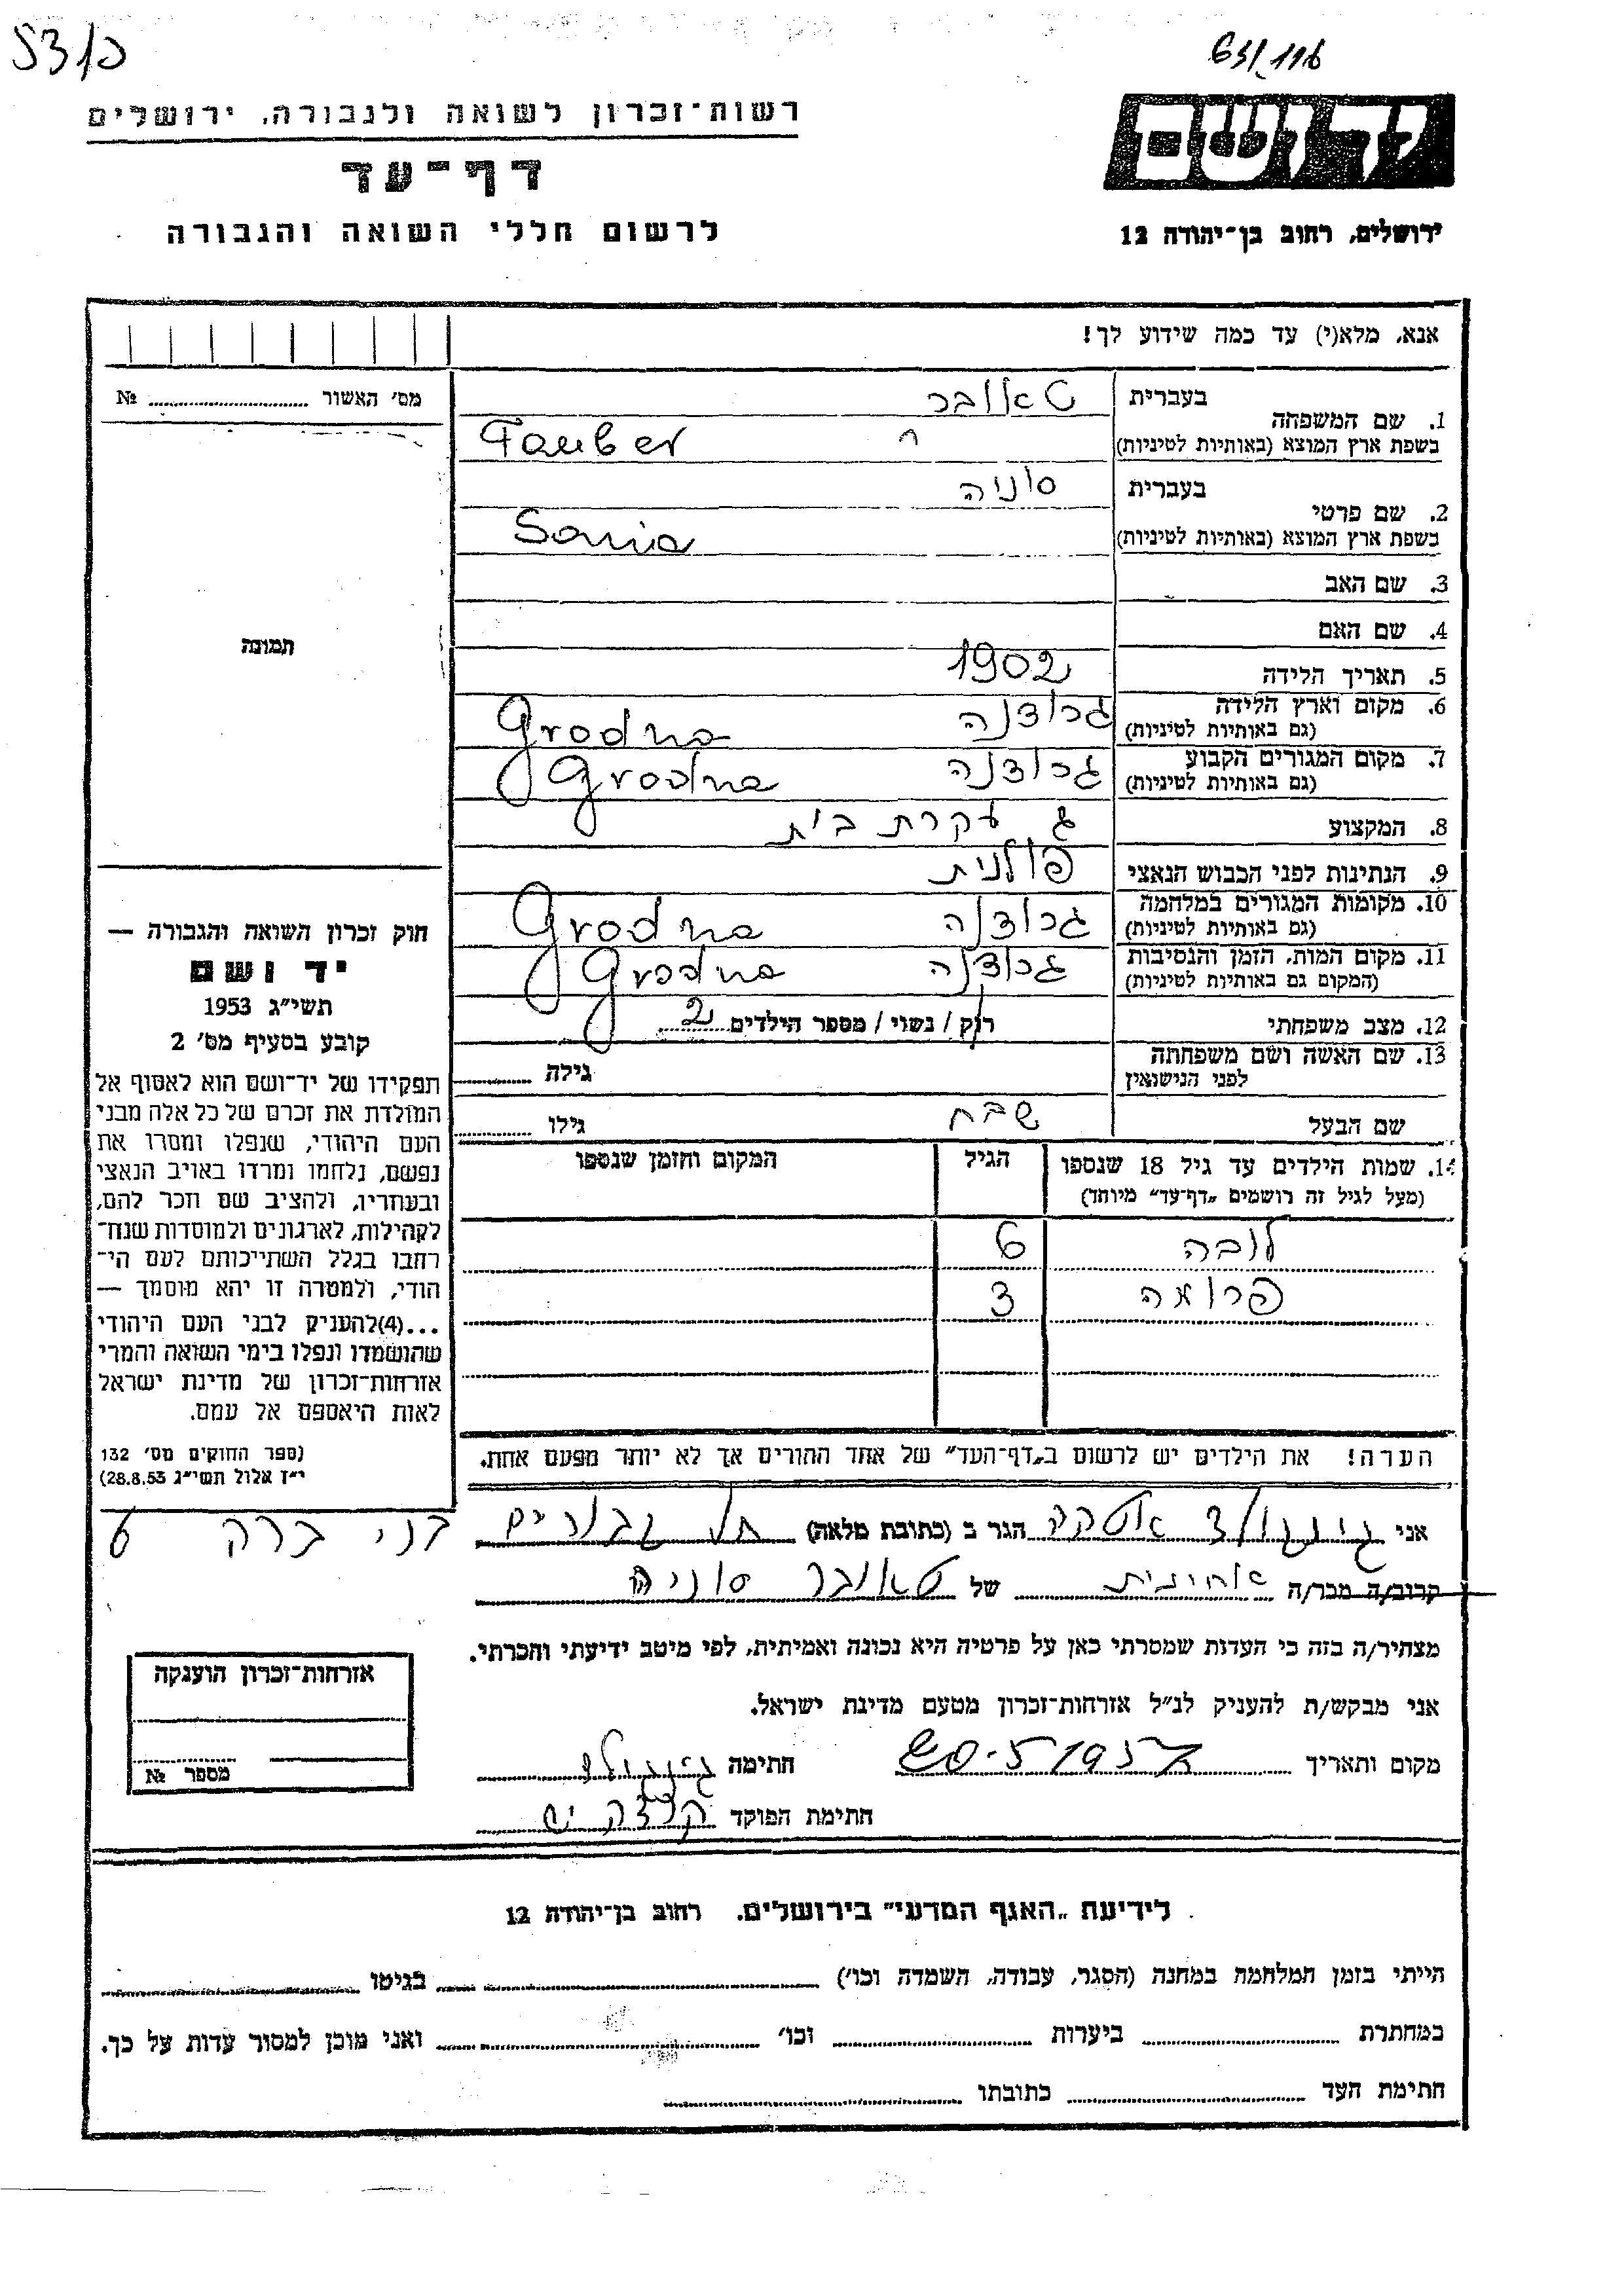 53/כ
63/116
רשות־זכרון לשואה ולגבורה, ירושלים
דף־עד
לרשום חללי השואה והגבורה
ידושם
ירושלים, רחוב בן־יהודה 12
אנא, מלא(י) עד כמה שידוע לך!
מס' האשור № 
1. שם המשפחה
בעברית טאובר
בשפת ארץ המוצא (באותיות לטיניות) Tauber
2. שם פרטי
בעברית סוניה
בשפת ארץ המוצא (באותיות לטיניות) Sonia
3. שם האב
4. שם האם
תמונה
5. תאריך הלידה 1902
6. מקום וארץ הלידה (גם באותיות לטיניות) גרודנה Grodna
7. מקום המגורים הקבוע (גם באותיות לטיניות) גרודנה Grodna
8. המקצוע עקרת בית
9. הנתינות לפני הכבוש הנאצי פולנית
10. מקומות המגורים במלחמה (גם באותיות לטיניות) גרודנה Grodna
11. מקום המות, הזמן והנסיבות (המקום גם באותיות לטיניות) גרודנה Grodna
12. מצב משפחתי רוק / נשוי / מספר הילדים 2
13. שם האשה ושם משפחתה לפני הנישואין גילה
שם הבעל שבח גילו
14. שמות הילדים עד גיל 18 שנספו הגיל המקום והזמן שנספו
(מעל לגיל זה רושמים „דף־עד" מיוחד)
לובה 6
פרומה 3
הערה! את הילדים יש לרשום ב„דף־העד" של אחד ההורים אך לא יותר מפעם אחת.
חוק זכרון השואה והגבורה —
יד ושם
תשי"ג 1953
קובע בסעיף מס' 2
תפקידו של יד־ושם הוא לאסוף אל
המולדת את זכרם של כל אלה מבני
העם היהודי, שנפלו ומסרו את
נפשם, נלחמו ומרדו באויב הנאצי
ובעוזריו, ולהציב שם וזכר להם,
לקהילות, לארגונים ולמוסדות שנח־
רחבו בגלל השתייכותם לעם הי־
הודי, ולמטרה זו יהא מוסמך —
...(4)להעניק לבני העם היהודי
שהושמדו ונפלו בימי השואה והמרי
אזרחות־זכרון של מדינת ישראל
לאות היאספם אל עמם.
(ספר החוקים מס' 132
י"ז אלול תשי"ג 28.8.53)
אני אסתר הגר ב (כתובת מלאה) תל גבורים בני ברק 6
קרוב/ה מכר/ה אחינית של טאובר סוניה
מצהיר/ה בזה כי העדות שמסרתי כאן על פרטיה היא נכונה ואמיתית, לפי מיטב ידיעתי והכרתי.
אני מבקש/ת להעניק לנ"ל אזרחות־זכרון מטעם מדינת ישראל.
אזרחות־זכרון הוענקה
מספר №
מקום ותאריך 20.5.1957 חתימה
חתימת הפוקד
לידיעת „האגף המדעי" בירושלים, רחוב בן־יהודה 12
הייתי בזמן המלחמה במחנה (הסגר, עבודה, השמדה וכו') בגיטו
במחתרת ביערות וכו' ואני מוכן למסור עדות על כך.
חתימת העד כתובתו